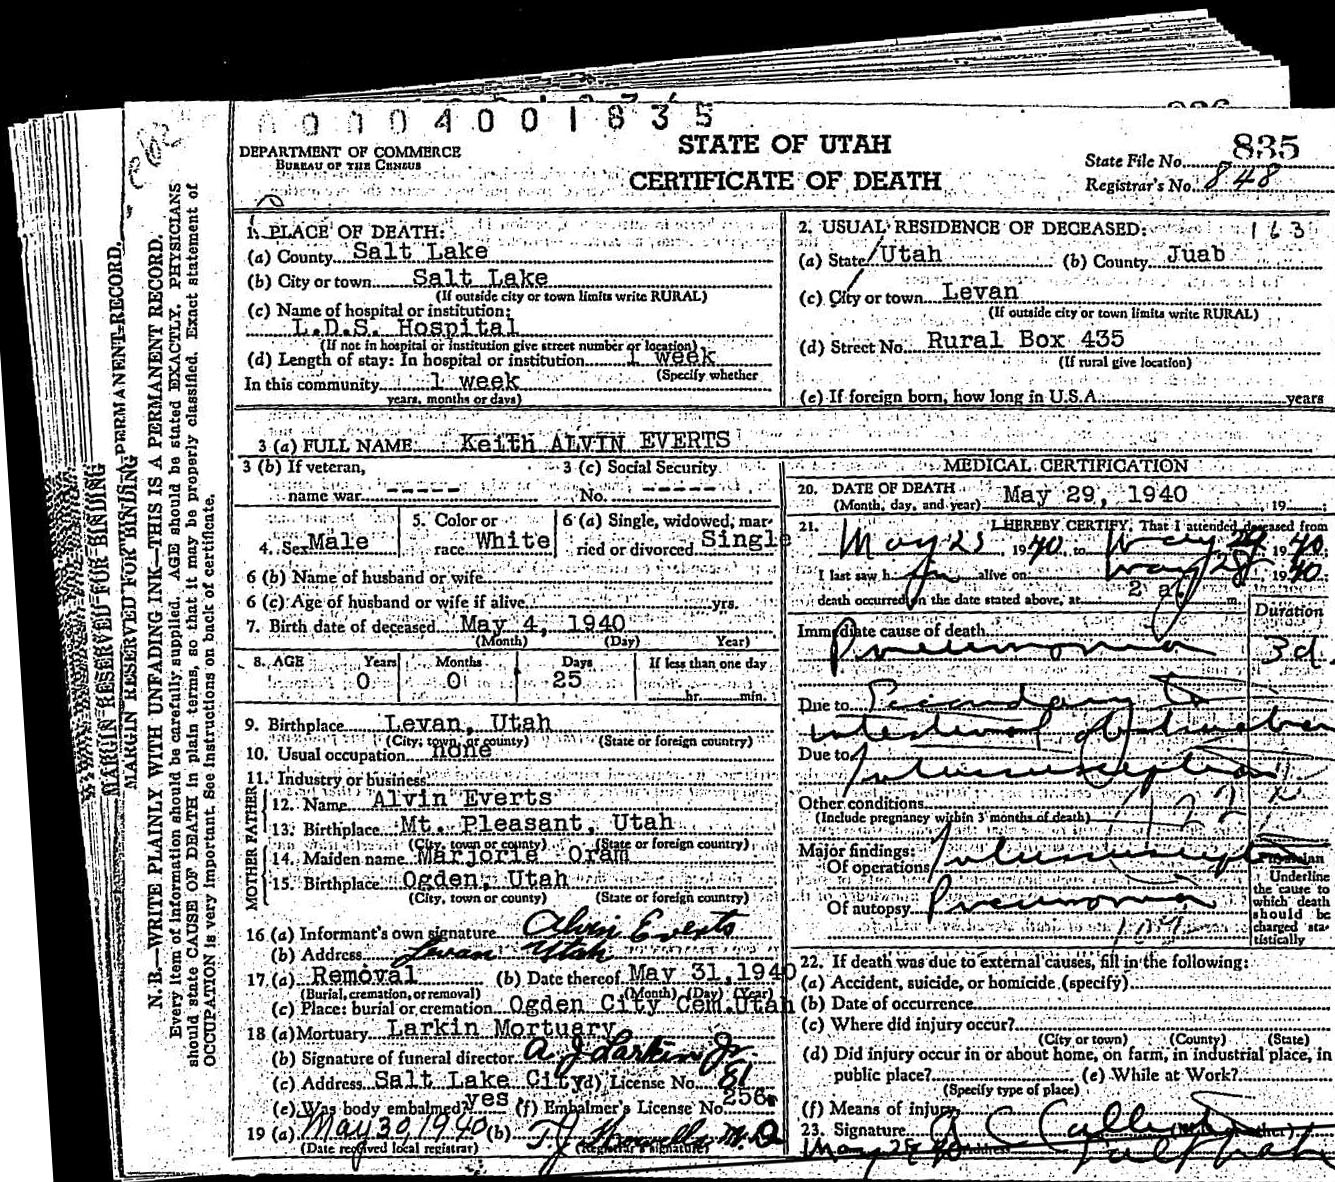 0 0 0 4 0 0 1 8 3 5
DEPARTMENT OF COMMERCE
BUREAU OF THE CENSUS
STATE OF UTAH
CERTIFICATE OF DEATH
State File No. 835
Registrar's No. 848
1. PLACE OF DEATH:
(a) County Salt Lake
(b) City or town Salt Lake
(If outside city or town limits write RURAL)
(c) Name of hospital or institution:
L.D.S. Hospital
(If not in hospital or institution give street number or location)
(d) Length of stay: In hospital or institution 1 week
(Specify whether
In this community 1 week
years, months or days)
2. USUAL RESIDENCE OF DECEASED: 163
(a) State Utah (b) County Juab
(c) City or town Levan
(If outside city or town limits write RURAL)
(d) Street No. Rural Box 435
(If rural give location)
(e) If foreign born, how long in U.S.A. years
3 (a) FULL NAME Keith ALVIN EVERTS
3 (b) If veteran, 3 (c) Social Security
name war ----- No. -----
4. Sex Male 5. Color or race White 6 (a) Single, widowed, married or divorced Single
6 (b) Name of husband or wife
6 (c) Age of husband or wife if alive yrs.
7. Birth date of deceased May 4, 1940
(Month) (Day) Year)
8. AGE Years Months Days If less than one day
0 0 25 hr. min.
9. Birthplace Levan, Utah
(City, town, or county) (State or foreign country)
10. Usual occupation none
11. Industry or business
FATHER
12. Name Alvin Everts
13. Birthplace Mt. Pleasant, Utah
(City, town or county) (State or foreign country)
MOTHER
14. Maiden name Marjorie Oram
15. Birthplace Ogden, Utah
(City, town or county) (State or foreign country)
16 (a) Informant's own signature Alvin Everts
(b) Address Levan Utah
17 (a) Removal (b) Date thereof May 31, 1940
(Burial, cremation, or removal) (Month) (Day) (Year)
(c) Place: burial or cremation Ogden City Cem. Utah
18 (a) Mortuary Larkin Mortuary
(b) Signature of funeral director A J Larkin Jr.
(c) Address Salt Lake City (d) License No. 81
(e) Was body embalmed? yes (f) Embalmer's License No. 256
19 (a) May 30, 1940 (b) T J Howells M.D
(Date received local registrar) (Registrar's signature)
MEDICAL CERTIFICATION
20. DATE OF DEATH May 29, 1940
(Month, day, and year) , 19
21. I HEREBY CERTIFY, That I attended deceased from
May 23, 1940, to May 29 1940
I last saw him alive on May 28 1940
death occurred on the date stated above, at 2 a m
Duration
Immediate cause of death
Pneumonia 3d.
Due to Secondary to
intestinal
Due to Intussusception
Other conditions
(Include pregnancy within 3 months of death) 122
Major findings:
Of operations Intussusception
Of autopsy Pneumonia
Physician
Underline
the cause to
which death
should be
charged sta-
tistically
22. If death was due to external causes, fill in the following:
(a) Accident, suicide, or homicide (specify)
(b) Date of occurrence
(c) Where did injury occur?
(City or town) (County) (State)
(d) Did injury occur in or about home, on farm, in industrial place, in
public place? (e) While at Work?
(Specify type of place)
(f) Means of injury
23. Signature
Address
MARGIN RESERVED FOR BINDING
PERMANENT RECORD.
MARGIN RESERVED FOR BINDING
N. B.—WRITE PLAINLY WITH UNFADING INK—THIS IS A PERMANENT RECORD.
Every item of information should be carefully supplied. AGE should be stated EXACTLY. PHYSICIANS
should state CAUSE OF DEATH in plain terms, so that it may be properly classified. Exact statement of
OCCUPATION is very important. See instructions on back of certificate.